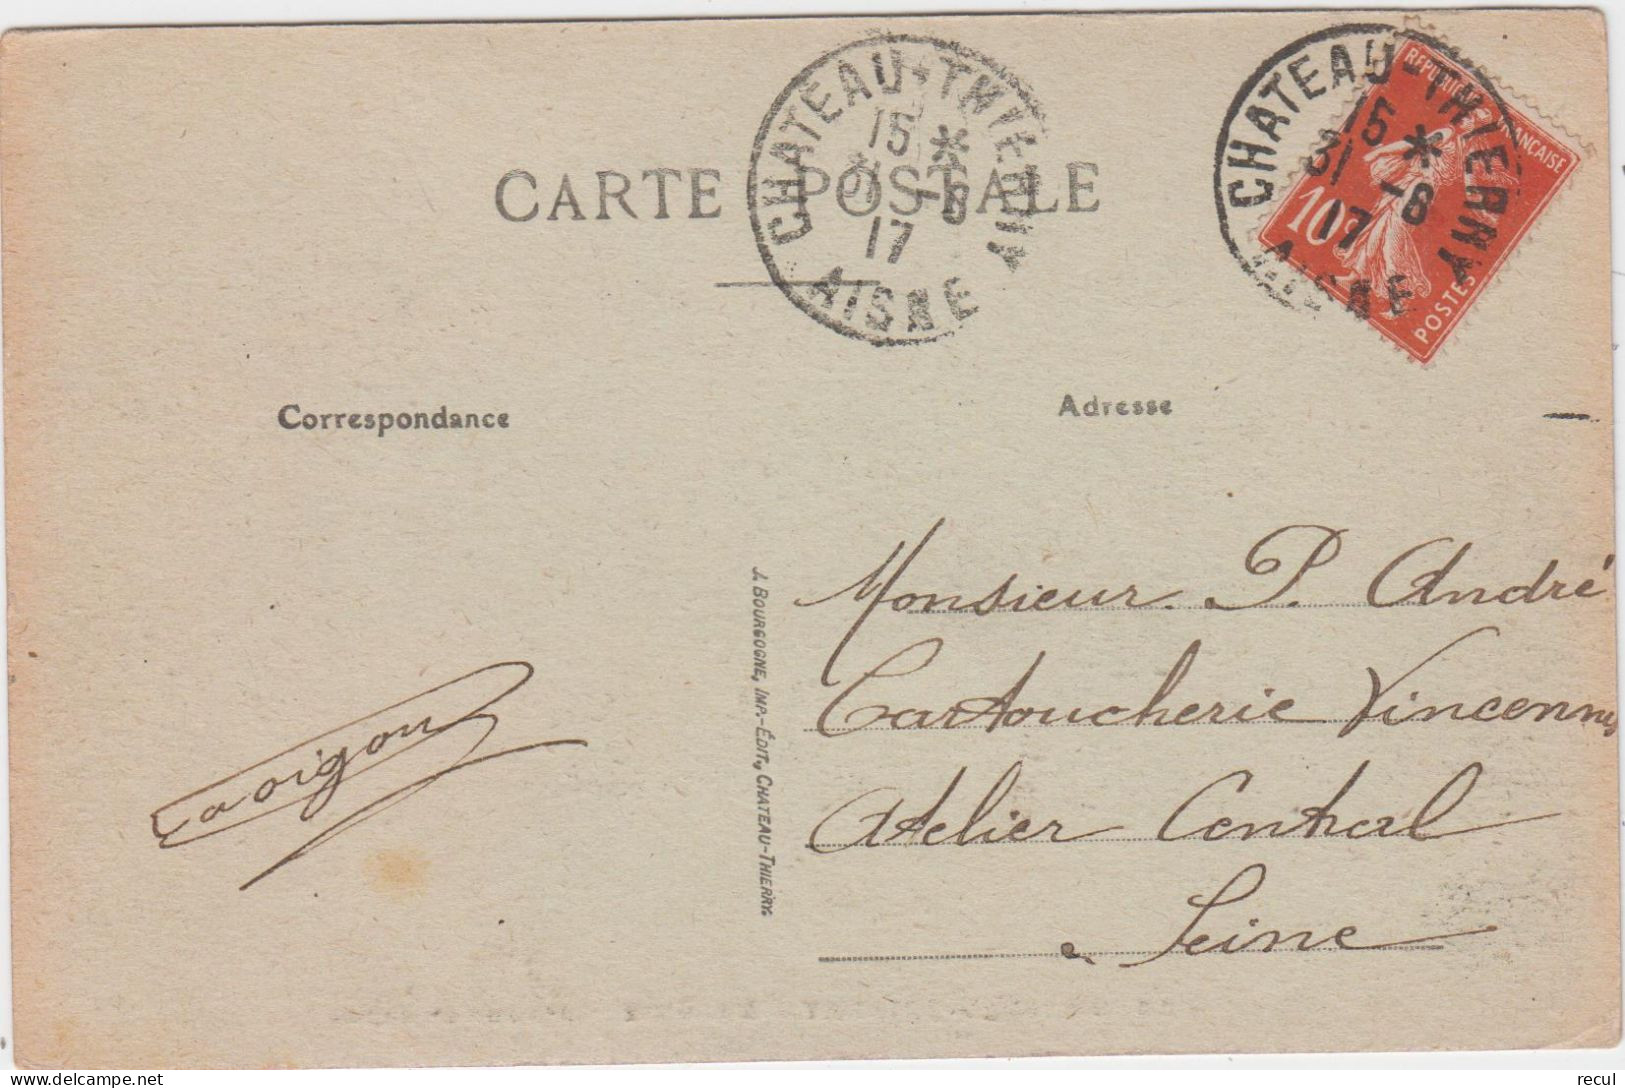 CHATEAU-THIERRY
15 *
31 -8
17
AISNE
CHATEAU-THIERRY
15 *
31 -8
17
AISNE
REPUBLIQUE FRANÇAISE
10c
POSTES
CARTE POSTALE
Correspondance
Adresse
Monsieur. P. André
Cartoucherie Vincennes
Atelier Central
Seine
J. BOURGOGNE, IMP.-ÉDIT., CHATEAU-THIERRY.
delcampe.net
recul